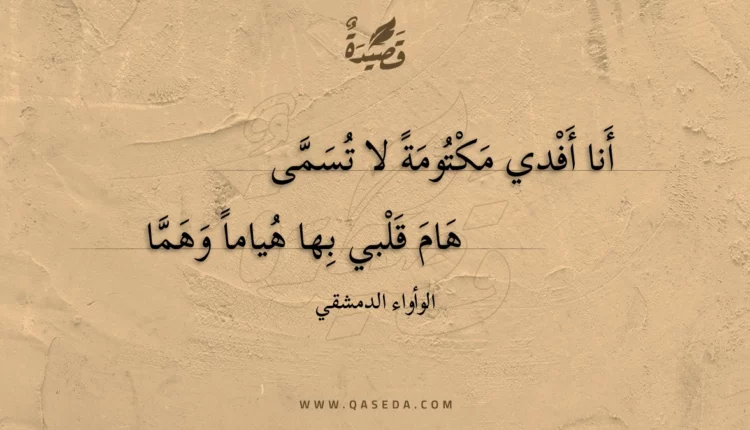 قَصِيدَةٌ
أَنا أَفْدي مَكْتُومَةً لا تُسَمَّى
هَامَ قَلْبي بِها هُياماً وَهَمَّا
الوأواء الدمشقي
WWW.QASEDA.COM